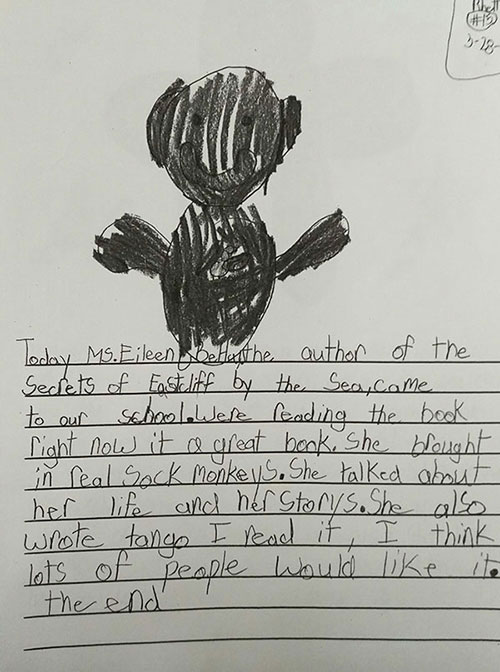 Rhett
#13
3-28-
Today Ms. Eileen Beha, the author of the
Secrets of Eastcliff by the Sea, came
to our school. Were reading the book
right now it a great book. She brought
in real Sock monkeys. She talked about
her life and her storys. She also
wrote tango I read it, I think
lots of people would like it.
the end